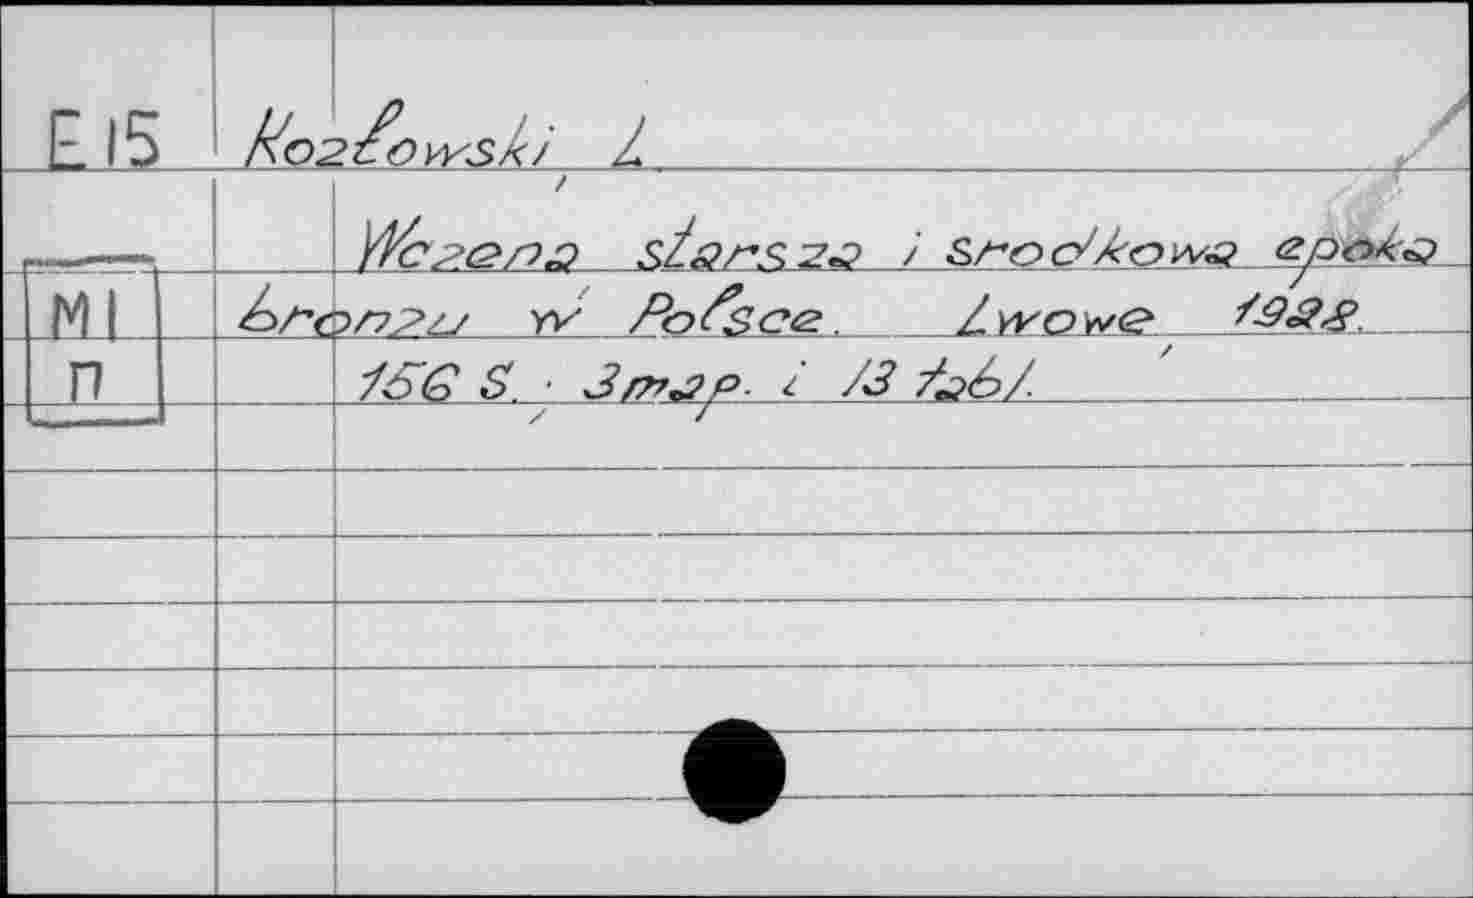 E15 Kozłowski L
Wczena starsza i srodkowa epoka
MI bronzu w Polsce. Lwowe 1928.
П 156 S. 3 map. i 13 tabl.